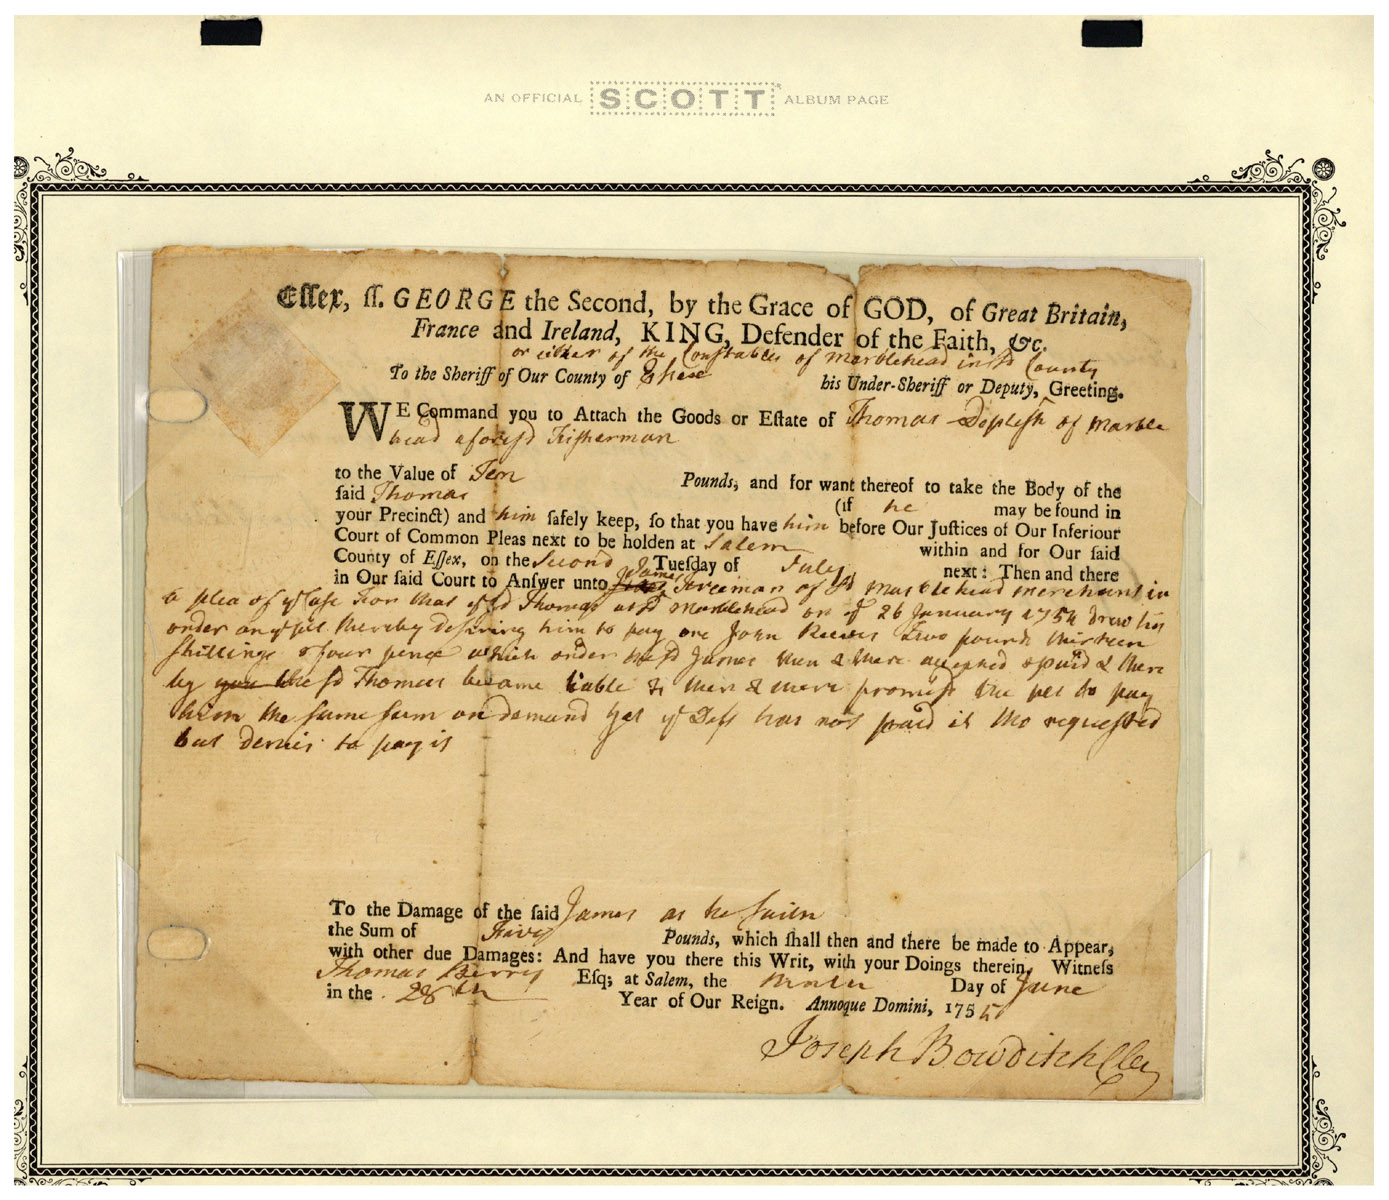 AN OFFICIAL SCOTT ALBUM PAGE
Eſſex, ſſ. GEORGE the Second, by the Grace of GOD, of Great Britain,
France and Ireland, KING, Defender of the Faith, &c.
or either of the Constables of Marblehead in sd County
To the Sheriff of Our County of Essex his Under-Sheriff or Deputy, Greeting.
WE Command you to Attach the Goods or Eſtate of Thomas of Marble
head aforesd Fisherman
to the Value of Ten Pounds, and for want thereof to take the Body of the
ſaid Thomas (if he may be found in
your Precinct) and him ſafely keep, ſo that you have him before Our Juſtices of Our Inferiour
Court of Common Pleas next to be holden at Salem within and for Our ſaid
County of Eſſex, on the Second Tuesday of July next: Then and there
in Our ſaid Court to Anſwer unto James Freeman of sd Marblehead merchant in
a plea of ye Case For that ye sd Thomas at sd Marblehead on ye 26 January 1754 drew his
order on ye thereby desiring him to pay one John Reeves Two pounds thirteen
shillings & four pence which order the sd James then & there accepted & paid & there
by the sd Thomas became liable & then & there promised the to pay
him the same sum on demand yet ye Deft has not paid it tho requested
but denies to pay it
To the Damage of the ſaid James as he saith
the Sum of Five Pounds, which ſhall then and there be made to Appear,
with other due Damages: And have you there this Writ, with your Doings therein. Witneſs
Thomas Berry Eſq; at Salem, the Day of June
in the 28th Year of Our Reign. Annoque Domini, 1755
Joseph Bowditch Cler